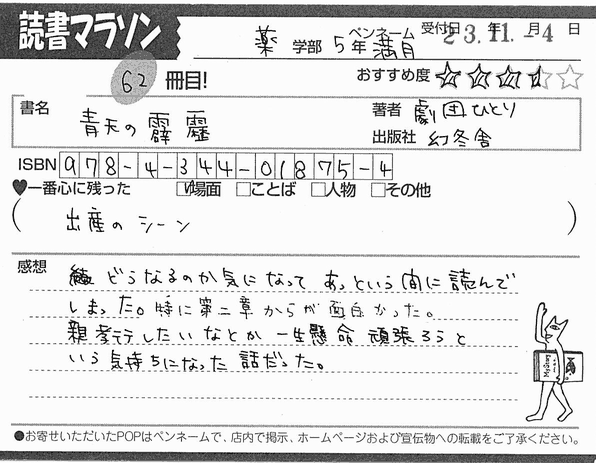 読書マラソン
薬 学部 5年 ペンネーム 満月 受付日 23年11.月-4日
62 冊目! おすすめ度 ★★★★☆
書名 青天の霹靂 著者 劇団ひとり
出版社 幻冬舎
ISBN 978-4-344-01875-4
♥一番心に残った ☑場面 □ことば □人物 □その他
( 出産のシーン )
感想
どうなるのか気になって あっという間に読んで
しまった。特に第二章からが面白かった。
親孝行したいなとか一生懸命頑張ろうと
いう気持ちになった話だった。
●お寄せいただいたPOPはペンネームで、店内で掲示、ホームページおよび宣伝物への転載をご了承ください。